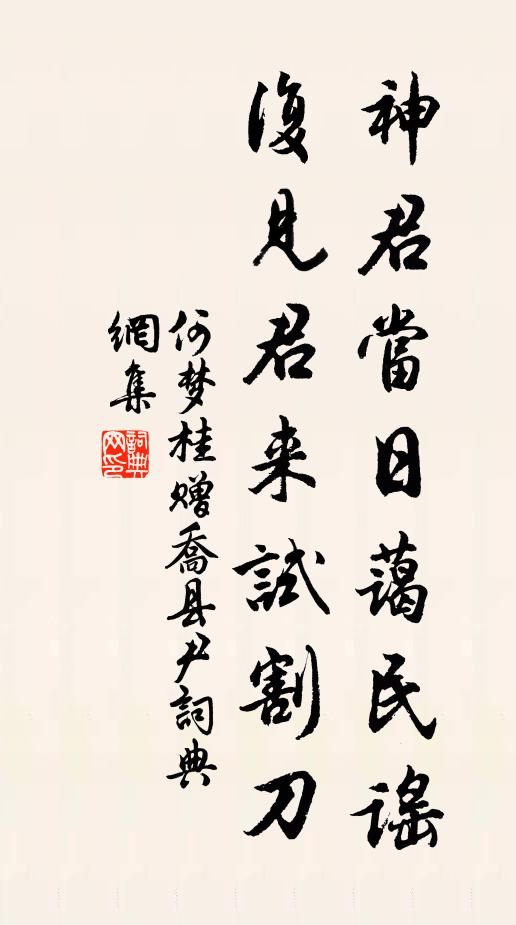 神君當日藹民謠
復見君来試割刀
何梦桂赠喬县尹詞典
網集
詞典网印